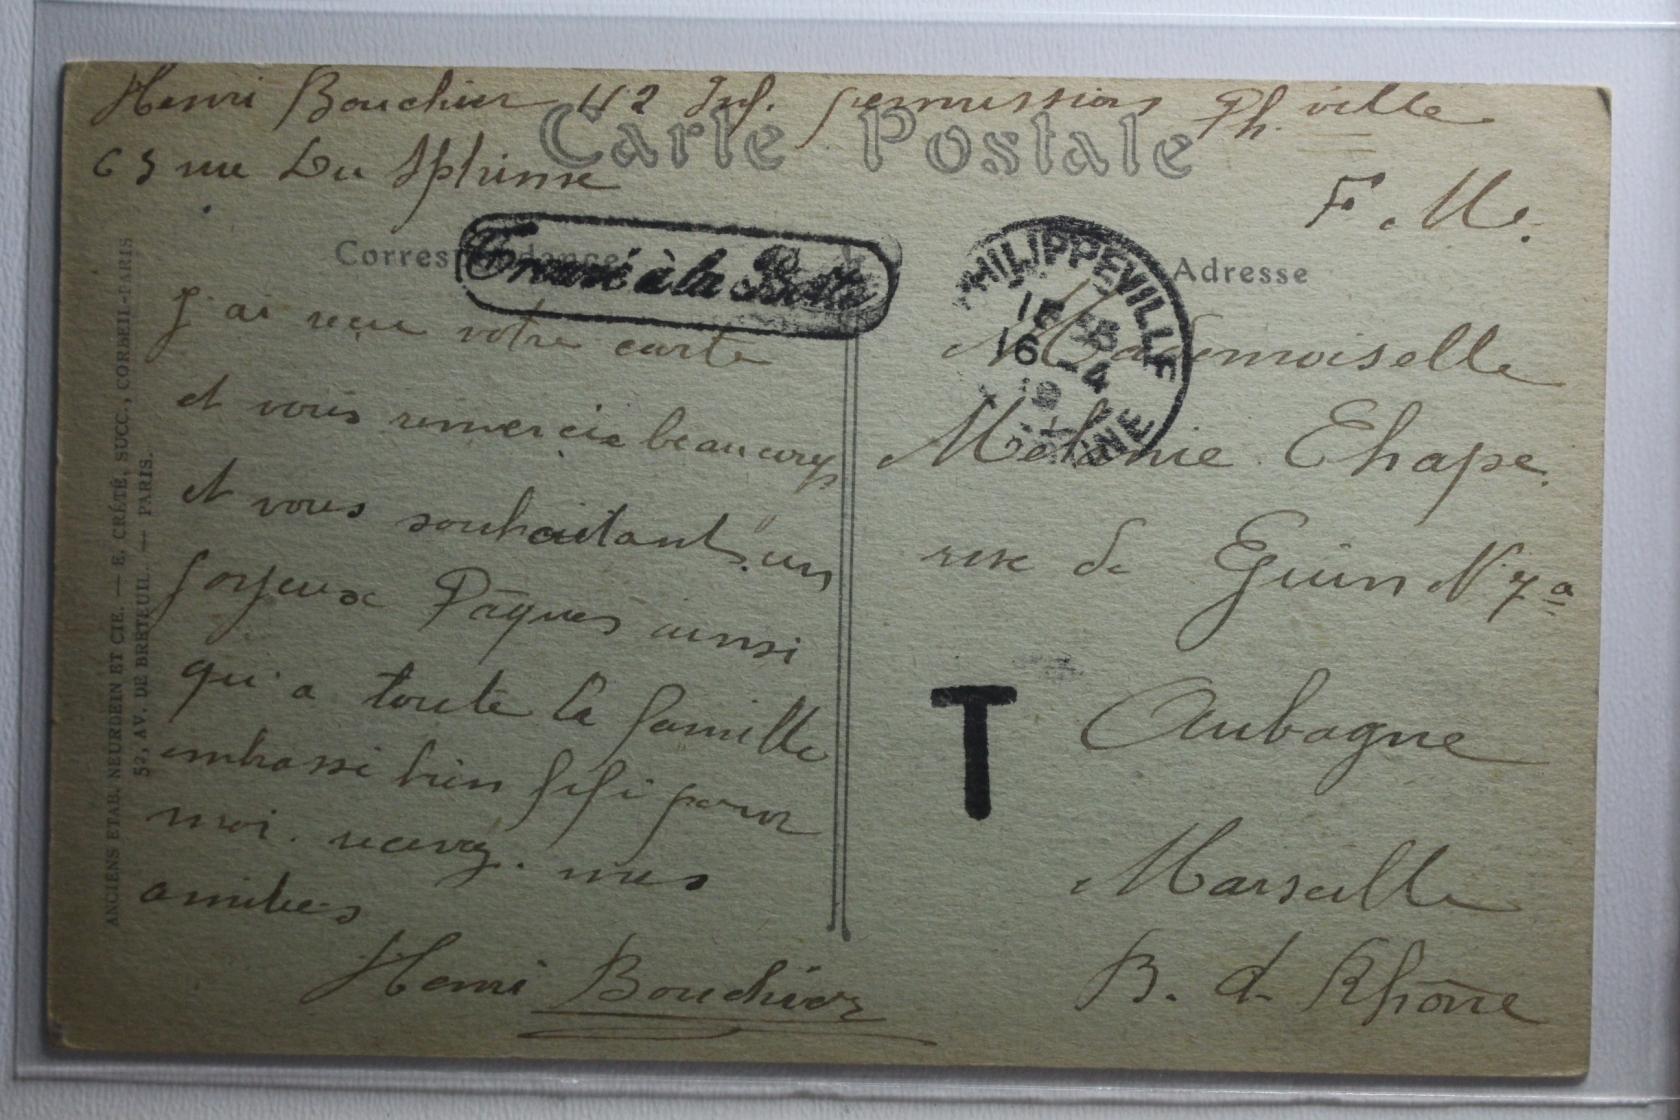 Henri Bouchier 112 Inf. permission Ph. ville
63 rue Du Sphinx
Carte Postale
F. M.
Correspondance
Trouvé à la Boîte
PHILIPPEVILLE
16 -4
Adresse
J'ai reçu votre carte
et vous remercie beaucoup
et vous souhaitant un
joyeux Pâques ainsi
qu'a toute la famille
embrassi bien fifi pour
moi. recevez. mes
amities
Henri Bouchier
Mademoiselle
Melanie Chape.
rue de Guin N° 7 a
T
Aubagne
Marseille
B. d. Rhône
ANCIENS ETAB. NEURDEIN ET CIE. — E. CRÉTÉ, SUCC., CORBEIL-PARIS
52, AV. DE BRETEUIL. — PARIS.